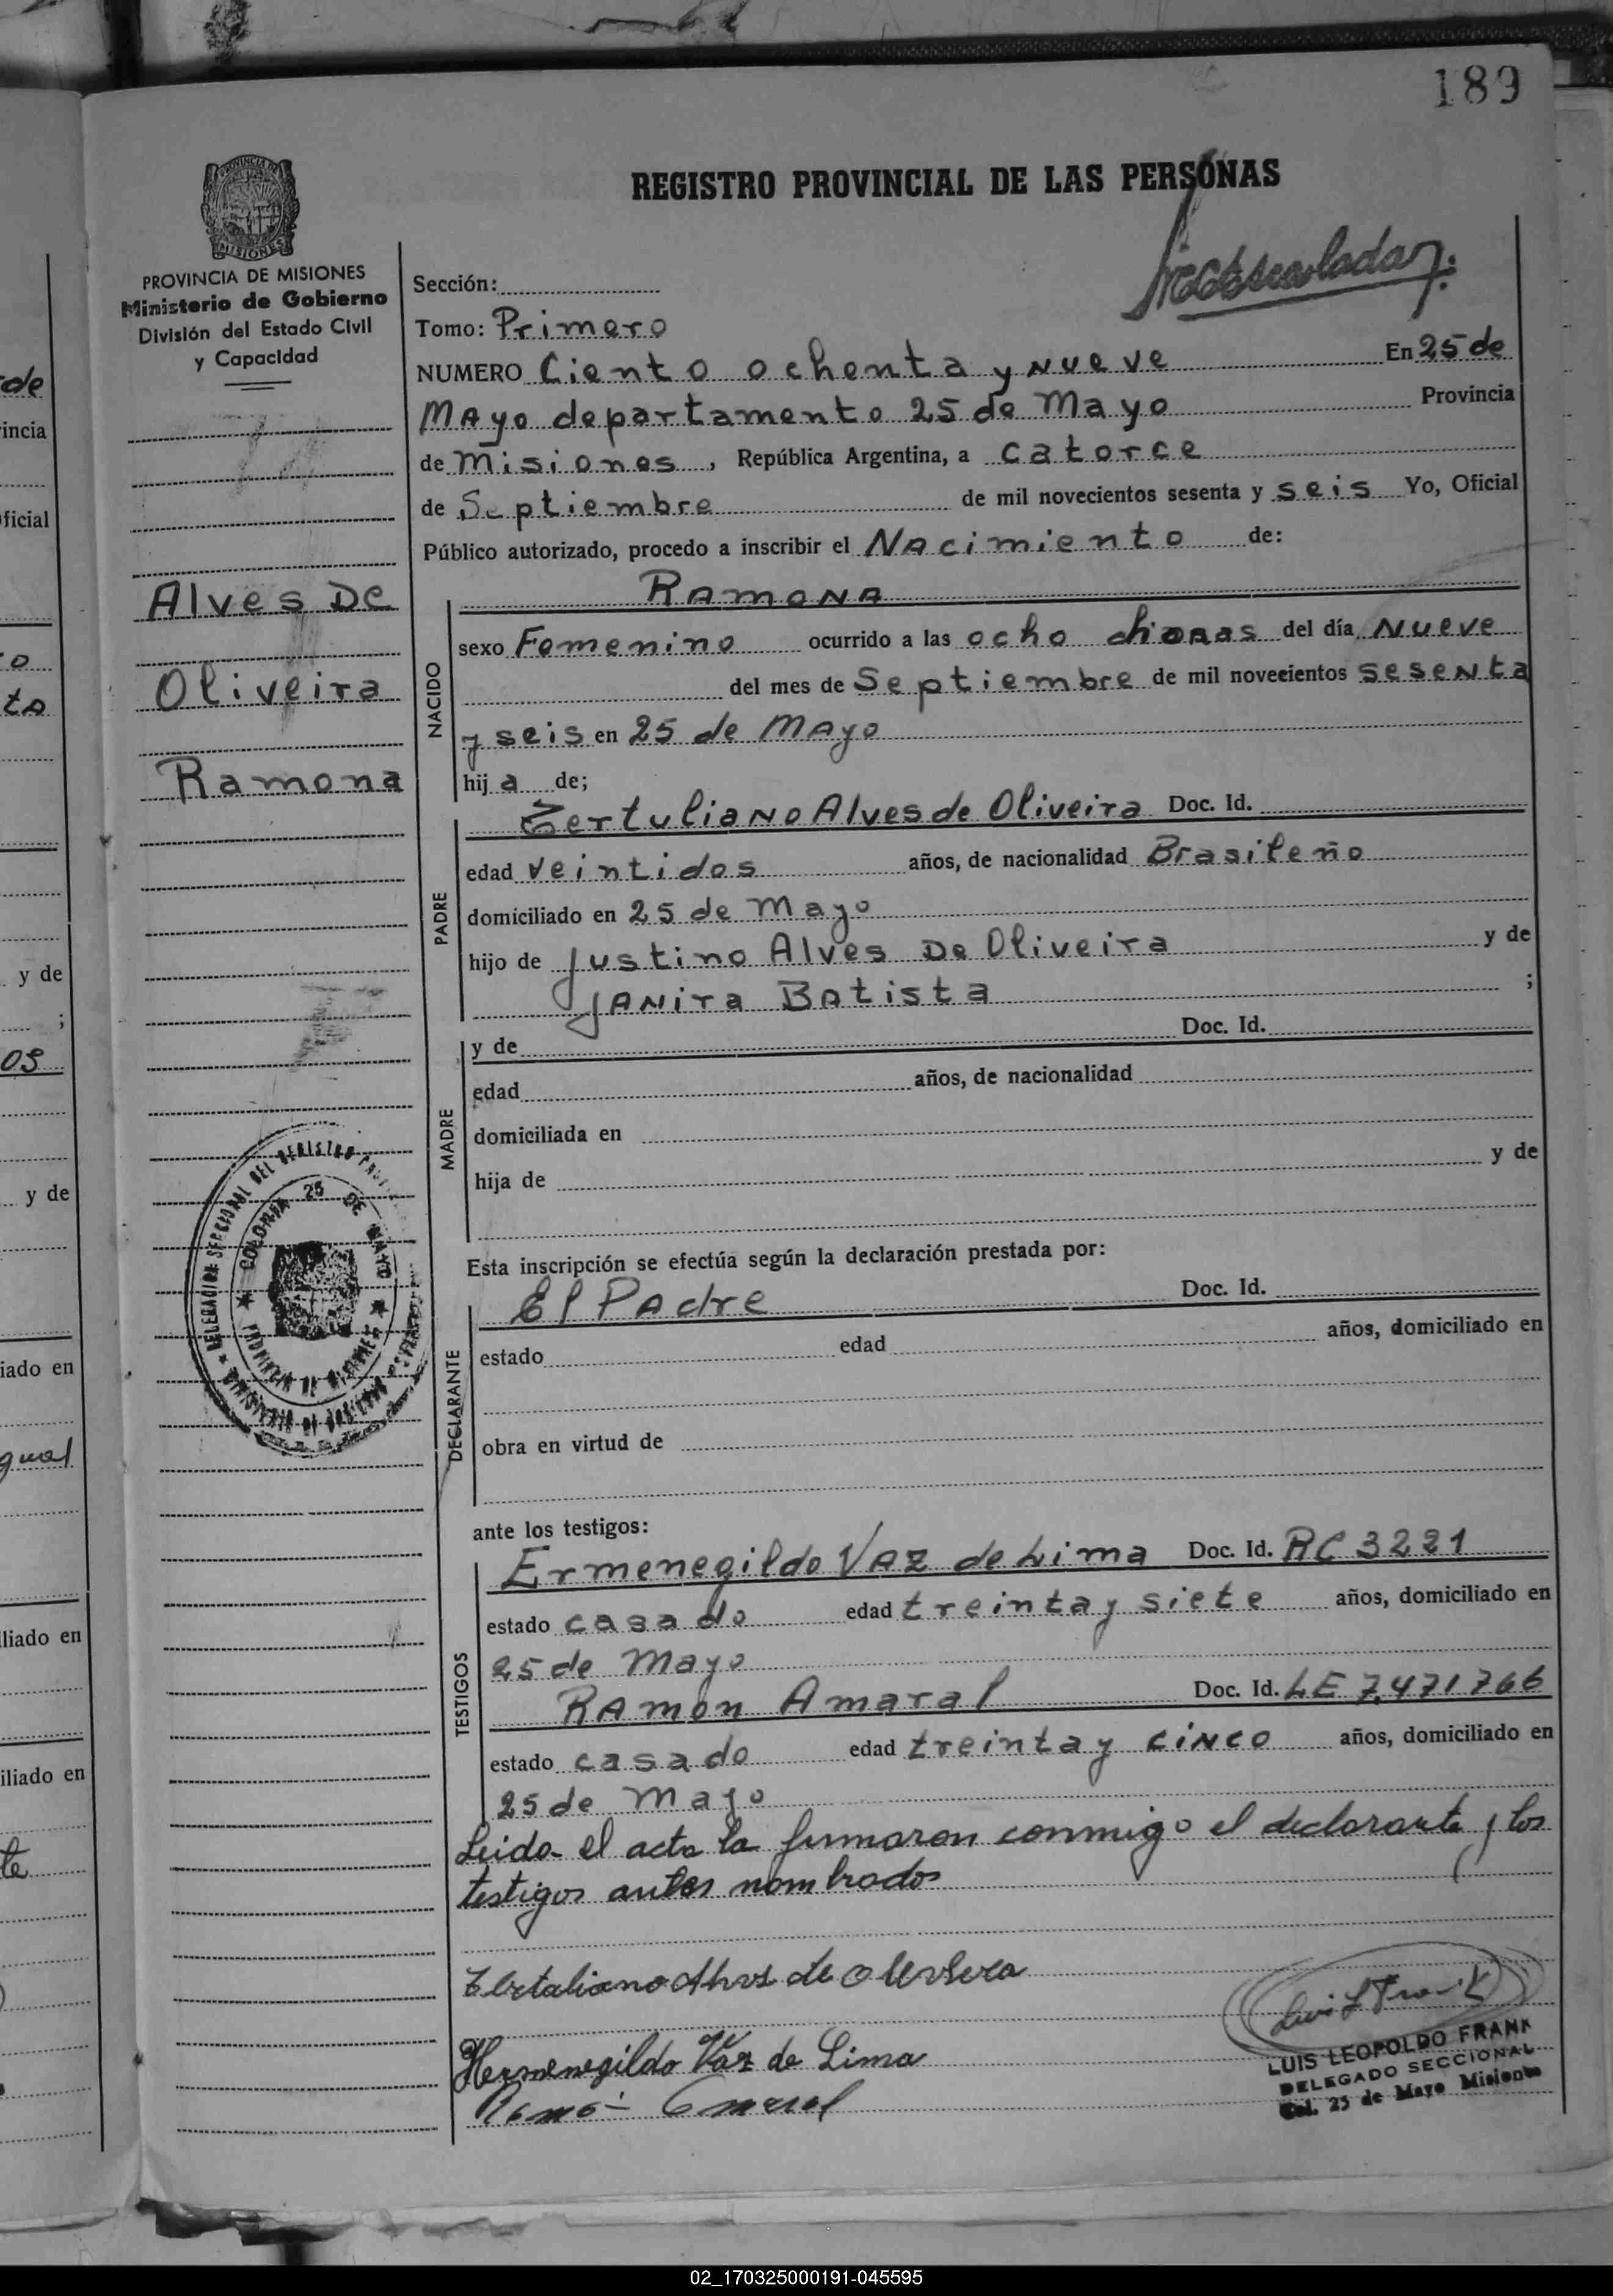 189
REGISTRO PROVINCIAL DE LAS PERSONAS
PROVINCIA DE MISIONES
Ministerio de Gobierno
División del Estado Civil
y Capacidad
Alves De
Oliveira
Ramona
Sección:
Tomo: Primero
NUMERO Ciento ochenta y nueve En 25 de
Mayo departamento 25 de Mayo Provincia
de Misiones, República Argentina, a catorce
de Septiembre de mil novecientos sesenta y seis Yo, Oficial
Público autorizado, procedo a inscribir el Nacimiento de:
NACIDO
Ramona
sexo Femenino ocurrido a las ocho horas del día Nueve
del mes de Septiembre de mil novecientos sesenta
y seis en 25 de Mayo
hija de;
PADRE
Tertuliano Alves de Oliveira Doc. Id.
edad veintidos años, de nacionalidad Brasileño
domiciliado en 25 de Mayo
hijo de Justino Alves De Oliveira y de
Janira Batista ;
MADRE
y de Doc. Id.
edad años, de nacionalidad
domiciliada en
hija de y de
Esta inscripción se efectúa según la declaración prestada por:
DECLARANTE
El Padre Doc. Id.
estado edad años, domiciliado en
obra en virtud de
ante los testigos:
TESTIGOS
Ermenegildo Vaz de Lima Doc. Id. RC 3221
estado casado edad treinta y siete años, domiciliado en
25 de Mayo
Ramon Amaral Doc. Id. LE 7.471766
estado casado edad treinta y cinco años, domiciliado en
25 de Mayo
Leida el acta la firmaron conmigo el declarante y los
testigos antes nombrados
Hermenegildo Vaz de Lima
LUIS LEOPOLDO FRANK
DELEGADO SECCIONAL
Col. 25 de Mayo Misiones
COLONIA 25 DE MAYO
PROVINCIA DE MISIONES
02_170325000191-045595